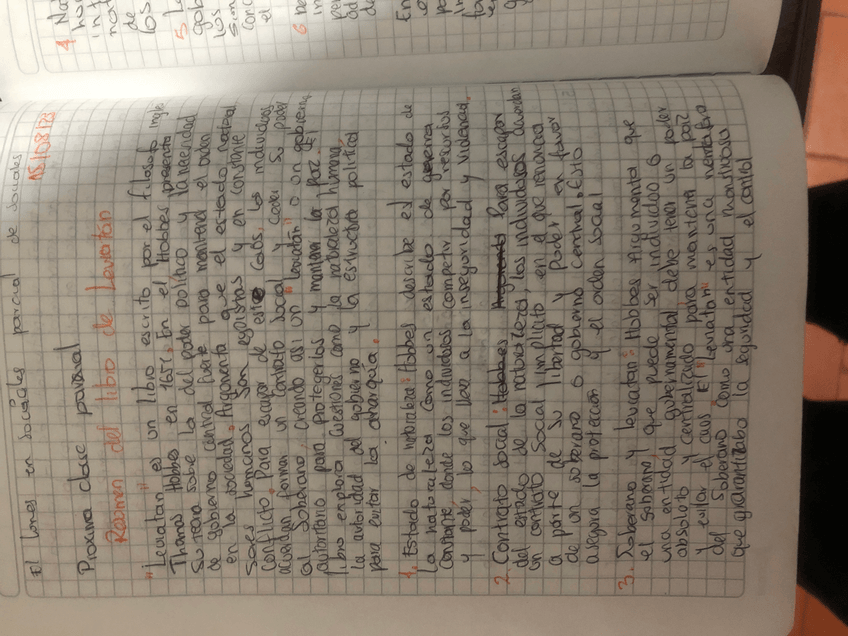 El lunes en sociales parcial de sociales
15/08/23
Proxima clase parcial
Resumen del libro de Leviatán
"Leviatan" es un libro escrito por el filosofo ingle
Thomas Hobbes en 1651. En el Hobbes presenta
su teoria sobre la del poder politico y la necesidad
de gobierno central fuerte para mantener el orden
en la sociedad. Argumenta que el estado natural
Seres humanos son egoistas y en constante
Conflicto. Para escapar de este Caos, los individuos
acuerdan forman un contrato social y ceder su poder
al Soberano, creando asi un "Leviatan" o un gobierno
autoritario para protegerlos y mantener la paz. El
libro explora cuestiones como la naturaleza humana,
la autoridad del gobierno y la estructura politica
para evitar la anarquia.
1. Estado de naturaleza: Hobbes describe el estado de
La naturaleza como un estado de guerra
Constante, donde los individuos compiten por recursos
y poder, lo que lleva a la inseguridad y violencia.
2. Contrato social: Hobbes Argumenta Para escapar
del estado de la naturaleza, los individuos acuerdan
un contrato Social implicito en el que renuncian
a parte de su libertad y Poder en favor
de un soberano o gobierno central. Esto
asegura la protección y el orden social
3. Soberano y leviatan: Hobbes Argumenta que
el soberano, que puede ser individuo o
una entidad gubernamental debe tener un poder
absoluto y centralizado para mantener la paz
y evitar el caos. El "Leviatan" es una
del Soberano como una entidad monstruosa
que garantizaba la seguridad y el control
4. Na
hu
in
na
de
los
5. L
gob
los
sim
con
el
6 he
in
pe
ad
de
En